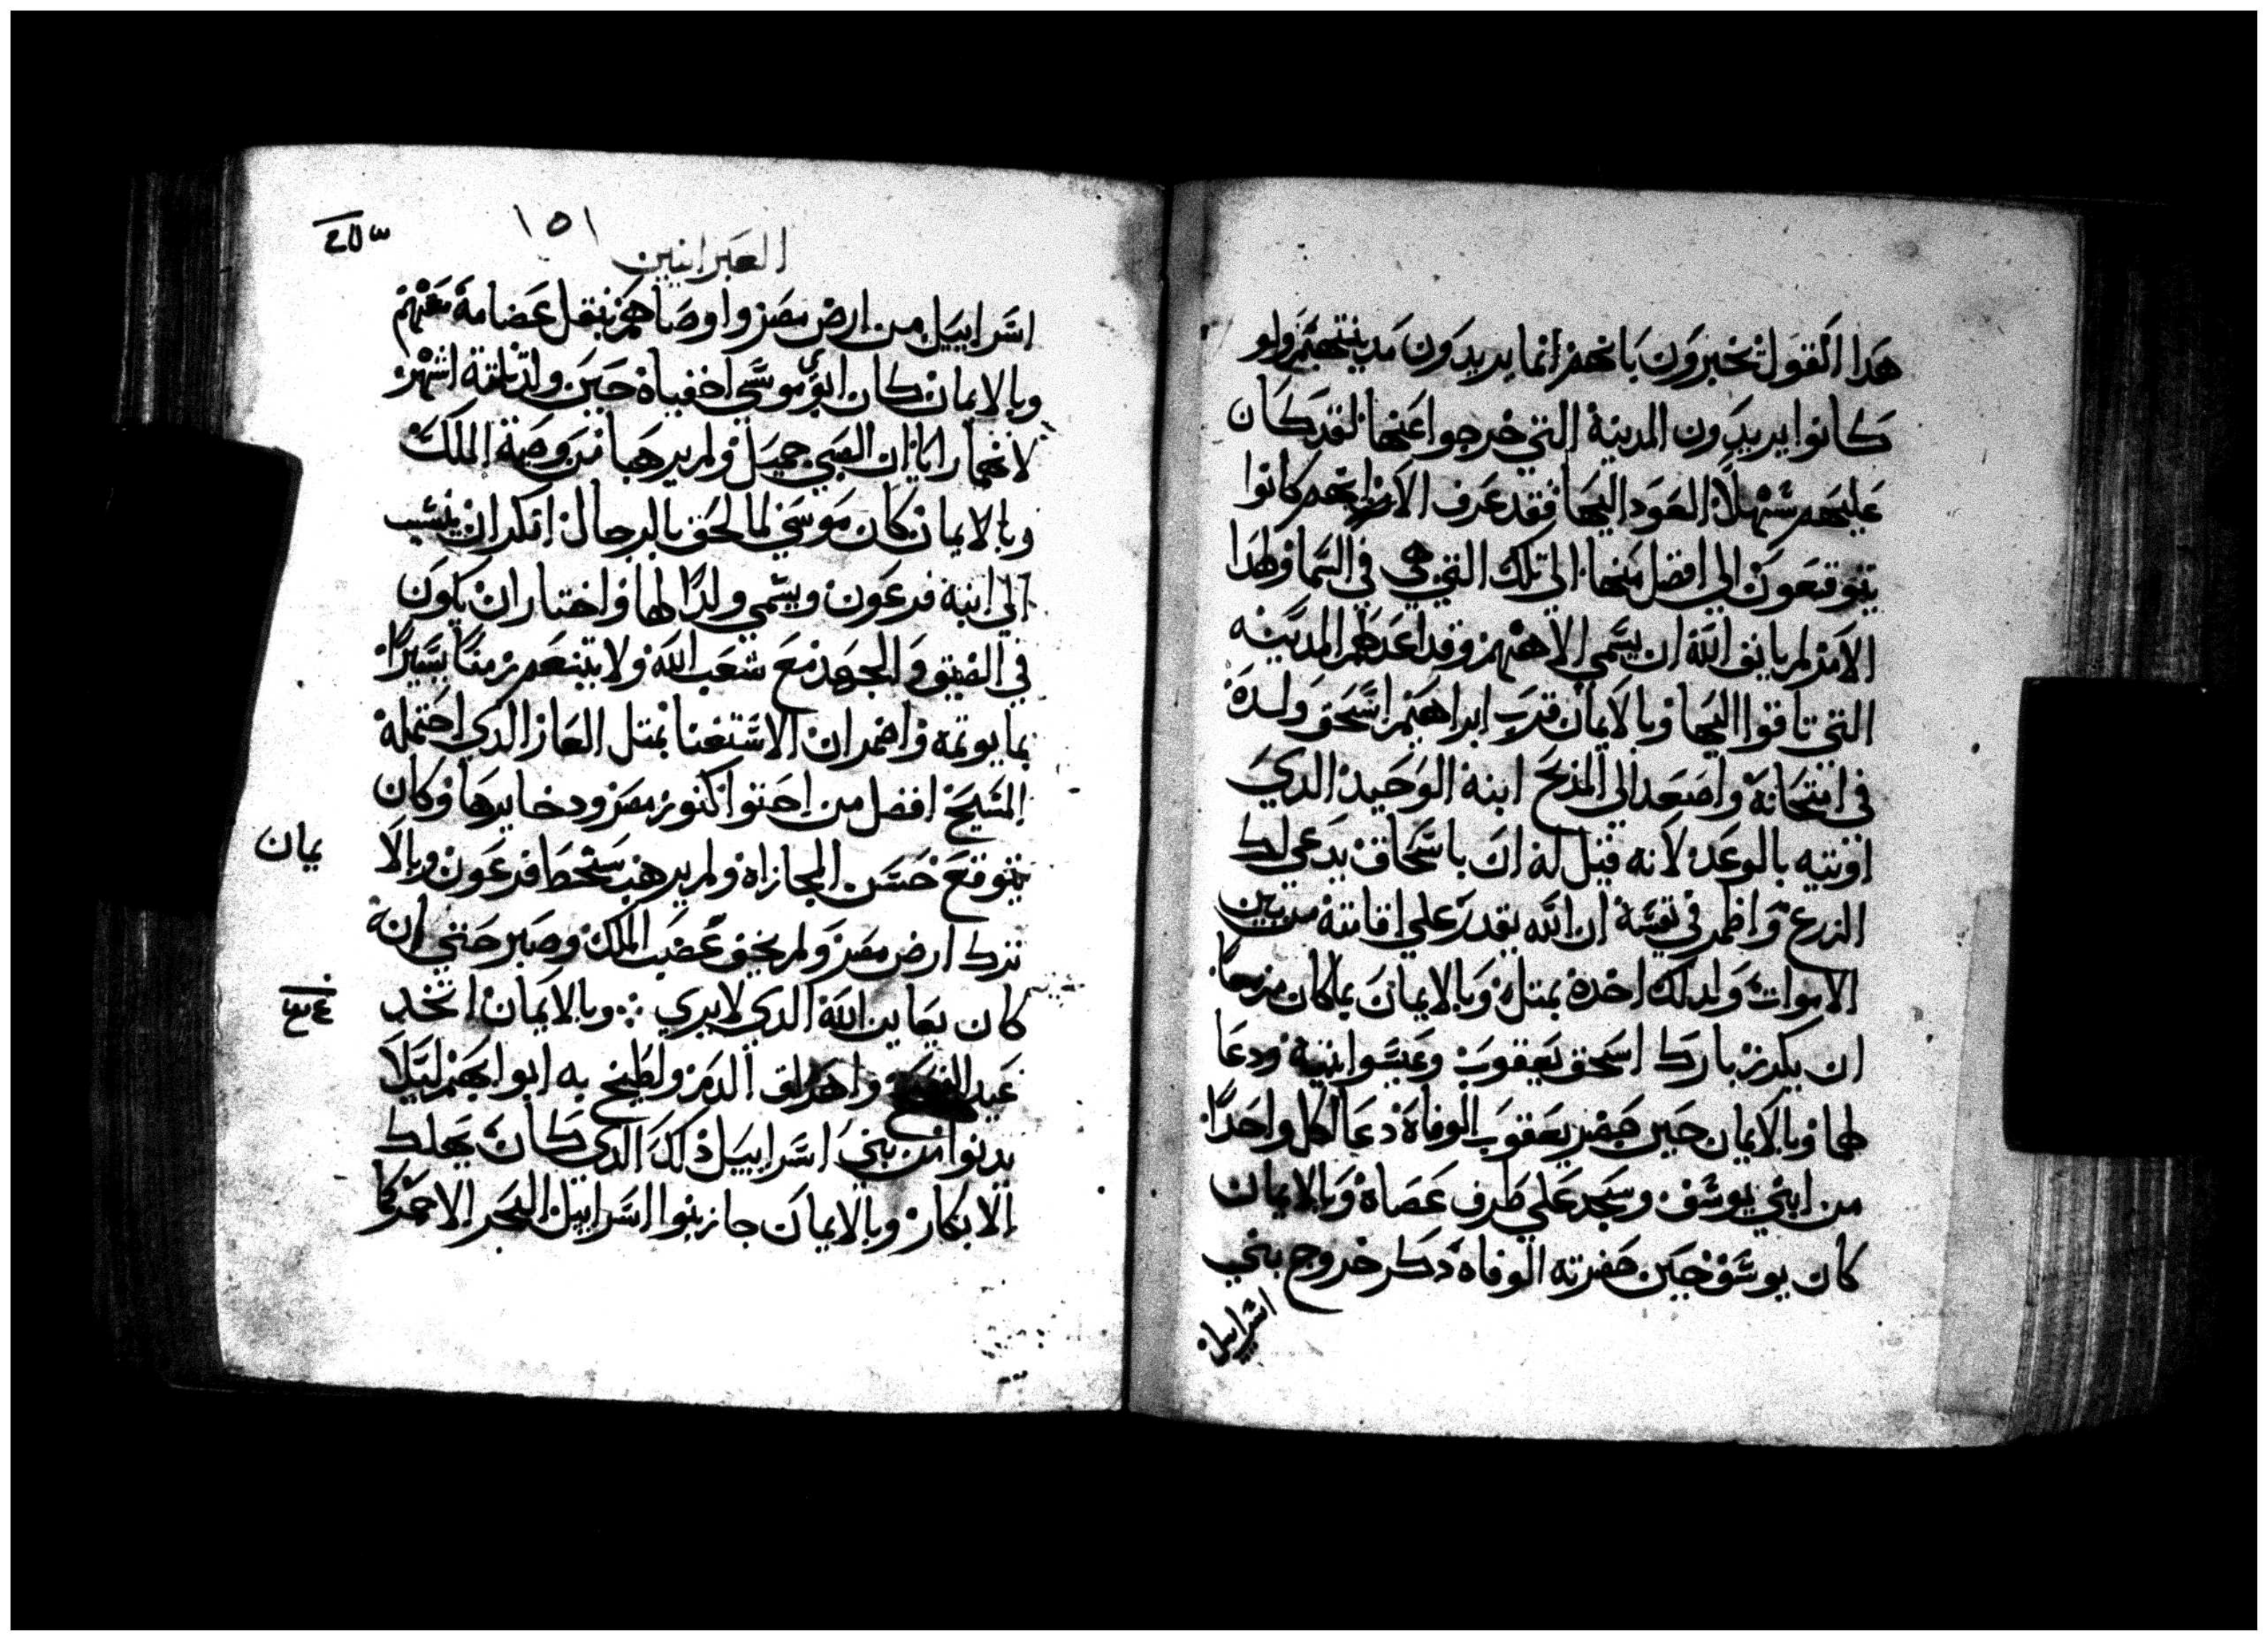 هدا القول يخبرون بانهم انما يريدون مدينتهم ولو
كانوا يريدون المدينة التي خرجوا عنها لقد كان
عليهم سهلا العود اليها فقد عرف الامر انهم كانوا
يتوقعون الي افضل منها الي تلك التي هي في السما ولهدا
الامر لم يانف الله ان يسمي الاههم وقد اعد لهم المدينه
التي تاقوا اليها وبالايمان قرب ابراهيم اسحق ولده
في امتحانه واصعد الي المذبح ابنه الوحيد الدي
اوتيه بالوعد لانه قيل له ان باسحاق يدعي لك
الزرع واظمر في نفسه ان الله يقدر علي اقامته من بين
الاموات ولدلك اخده بمتل وبالايمان بما كان مزمعا
ان يكون بارك اسحق يعقوب وعيسوا ابنيه ودعا
لهما وبالايمان حين حضر يعقوب الوفاة دعا لكل واحدا
من ابني يوسف وسجد علي طرف عصاه وبالايمان
كان يوسف حين حضرته الوفاه دكر خروج بني
اسراييل
١٥١
العبرانيين
اسراييل من ارض مصر واوصاهم بنقل عضامه معهم
وبالايمان كان ابوي موسي اخفياه حين ولد تلتة اشهر
لانهما رايا ان الصبي جميل ولم يرهبا من وصية الملك
وبالايمان كان موسي لما لحق بالرجال انكر ان ينسب
الي ابنة فرعون ويسمي ولدا لها واختار ان يكون
في الضيق والجهد مع شعب الله ولا يتنعم زمنا يسيرا
بما يوتمه واضمر ان الاستغنا بمتل العار الدي احتمله
المسيح افضل من احتوا كنوز مصر ودخايرها وكان
يتوقع حسن المجازاه ولم يرهب سخط فرعون وبالا
يمان
ترك ارض مصر ولم يخف غضب الملك وصبر حتي انه
كان يعاين الله الدي لا يري وبالايمان اتخد
عيد الفصح واهراق الدم ولطخ به ابوابهم ليلا
يدنوا من بني اسراييل ذلك الدي كان يهلك
الابكار وبالايمان جاز بنوا اسراييل البحر الاحمر كما